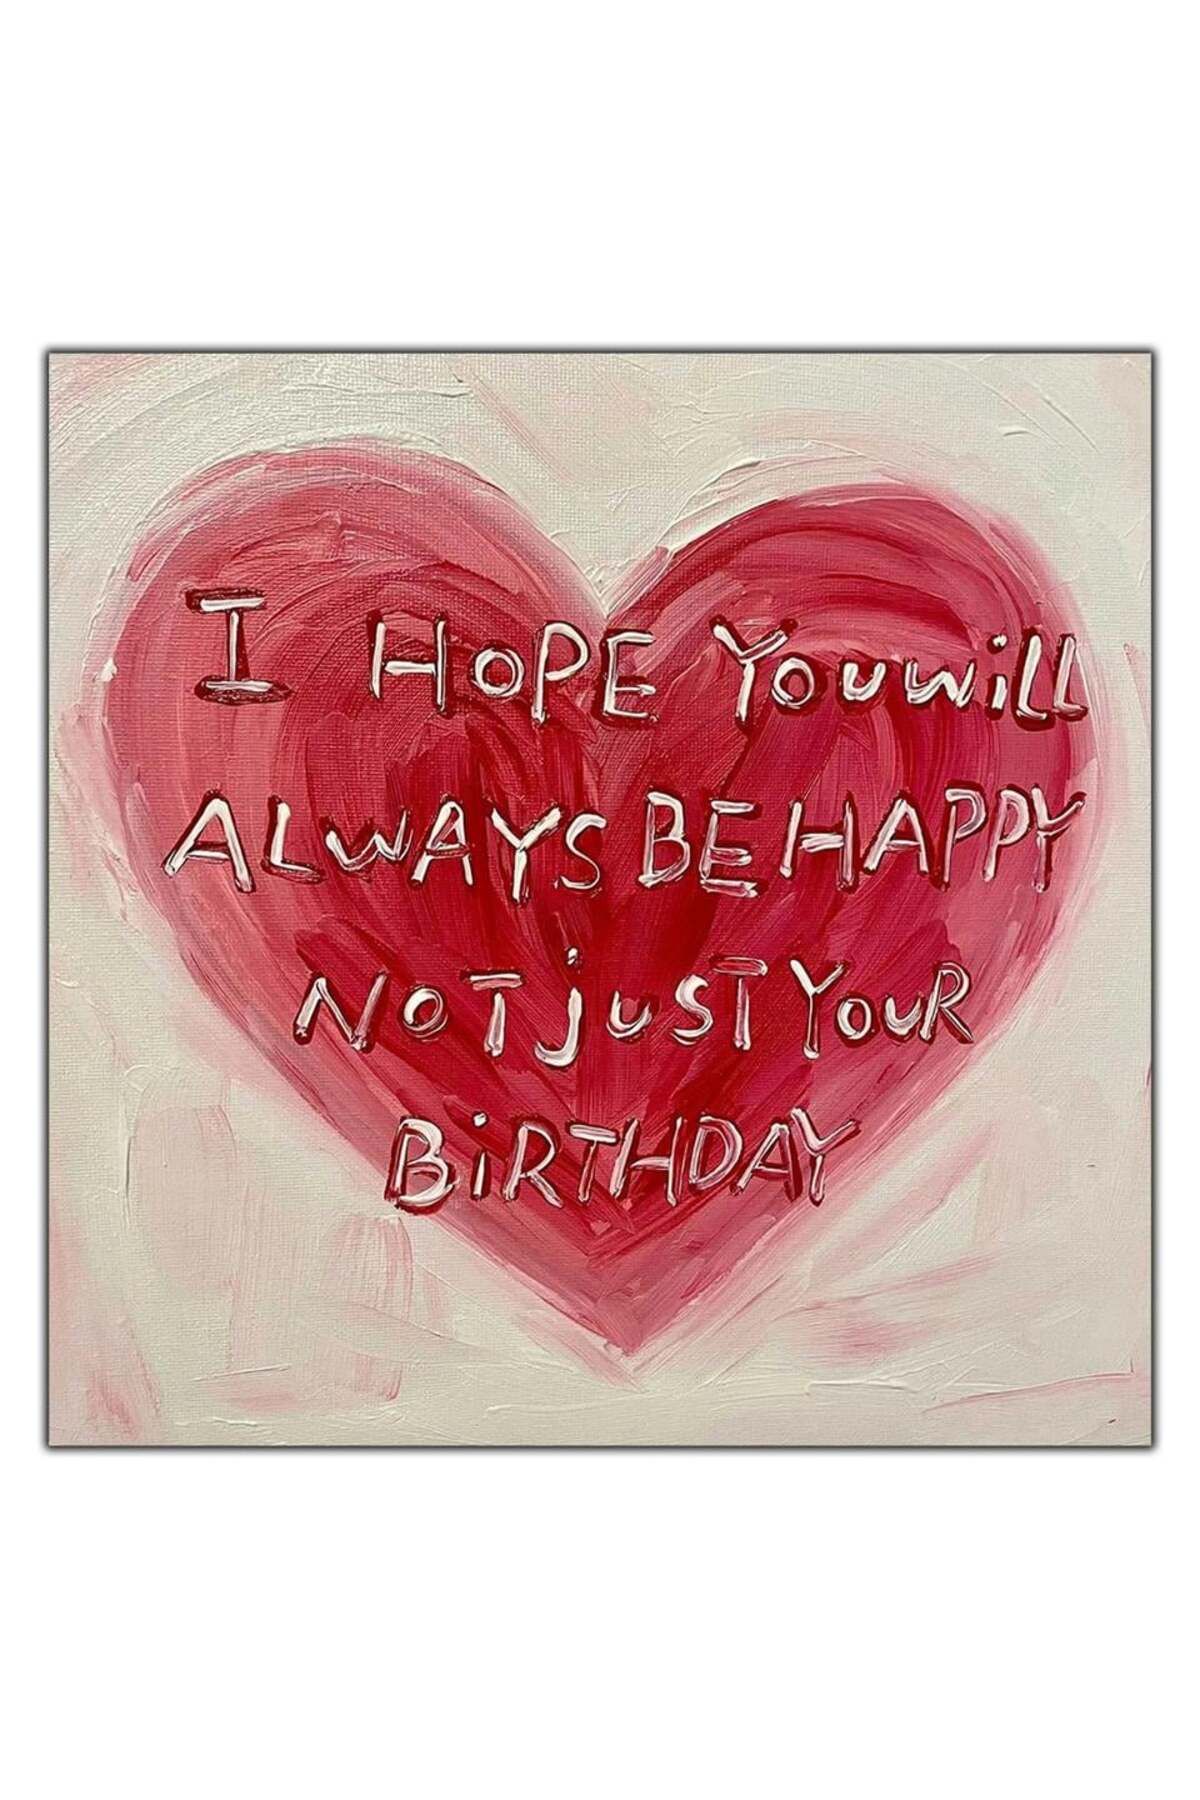 I HOPE YOU WiLL
ALWAYS BE HAPPY
NOT jUST YOUR
BiRTHDAY